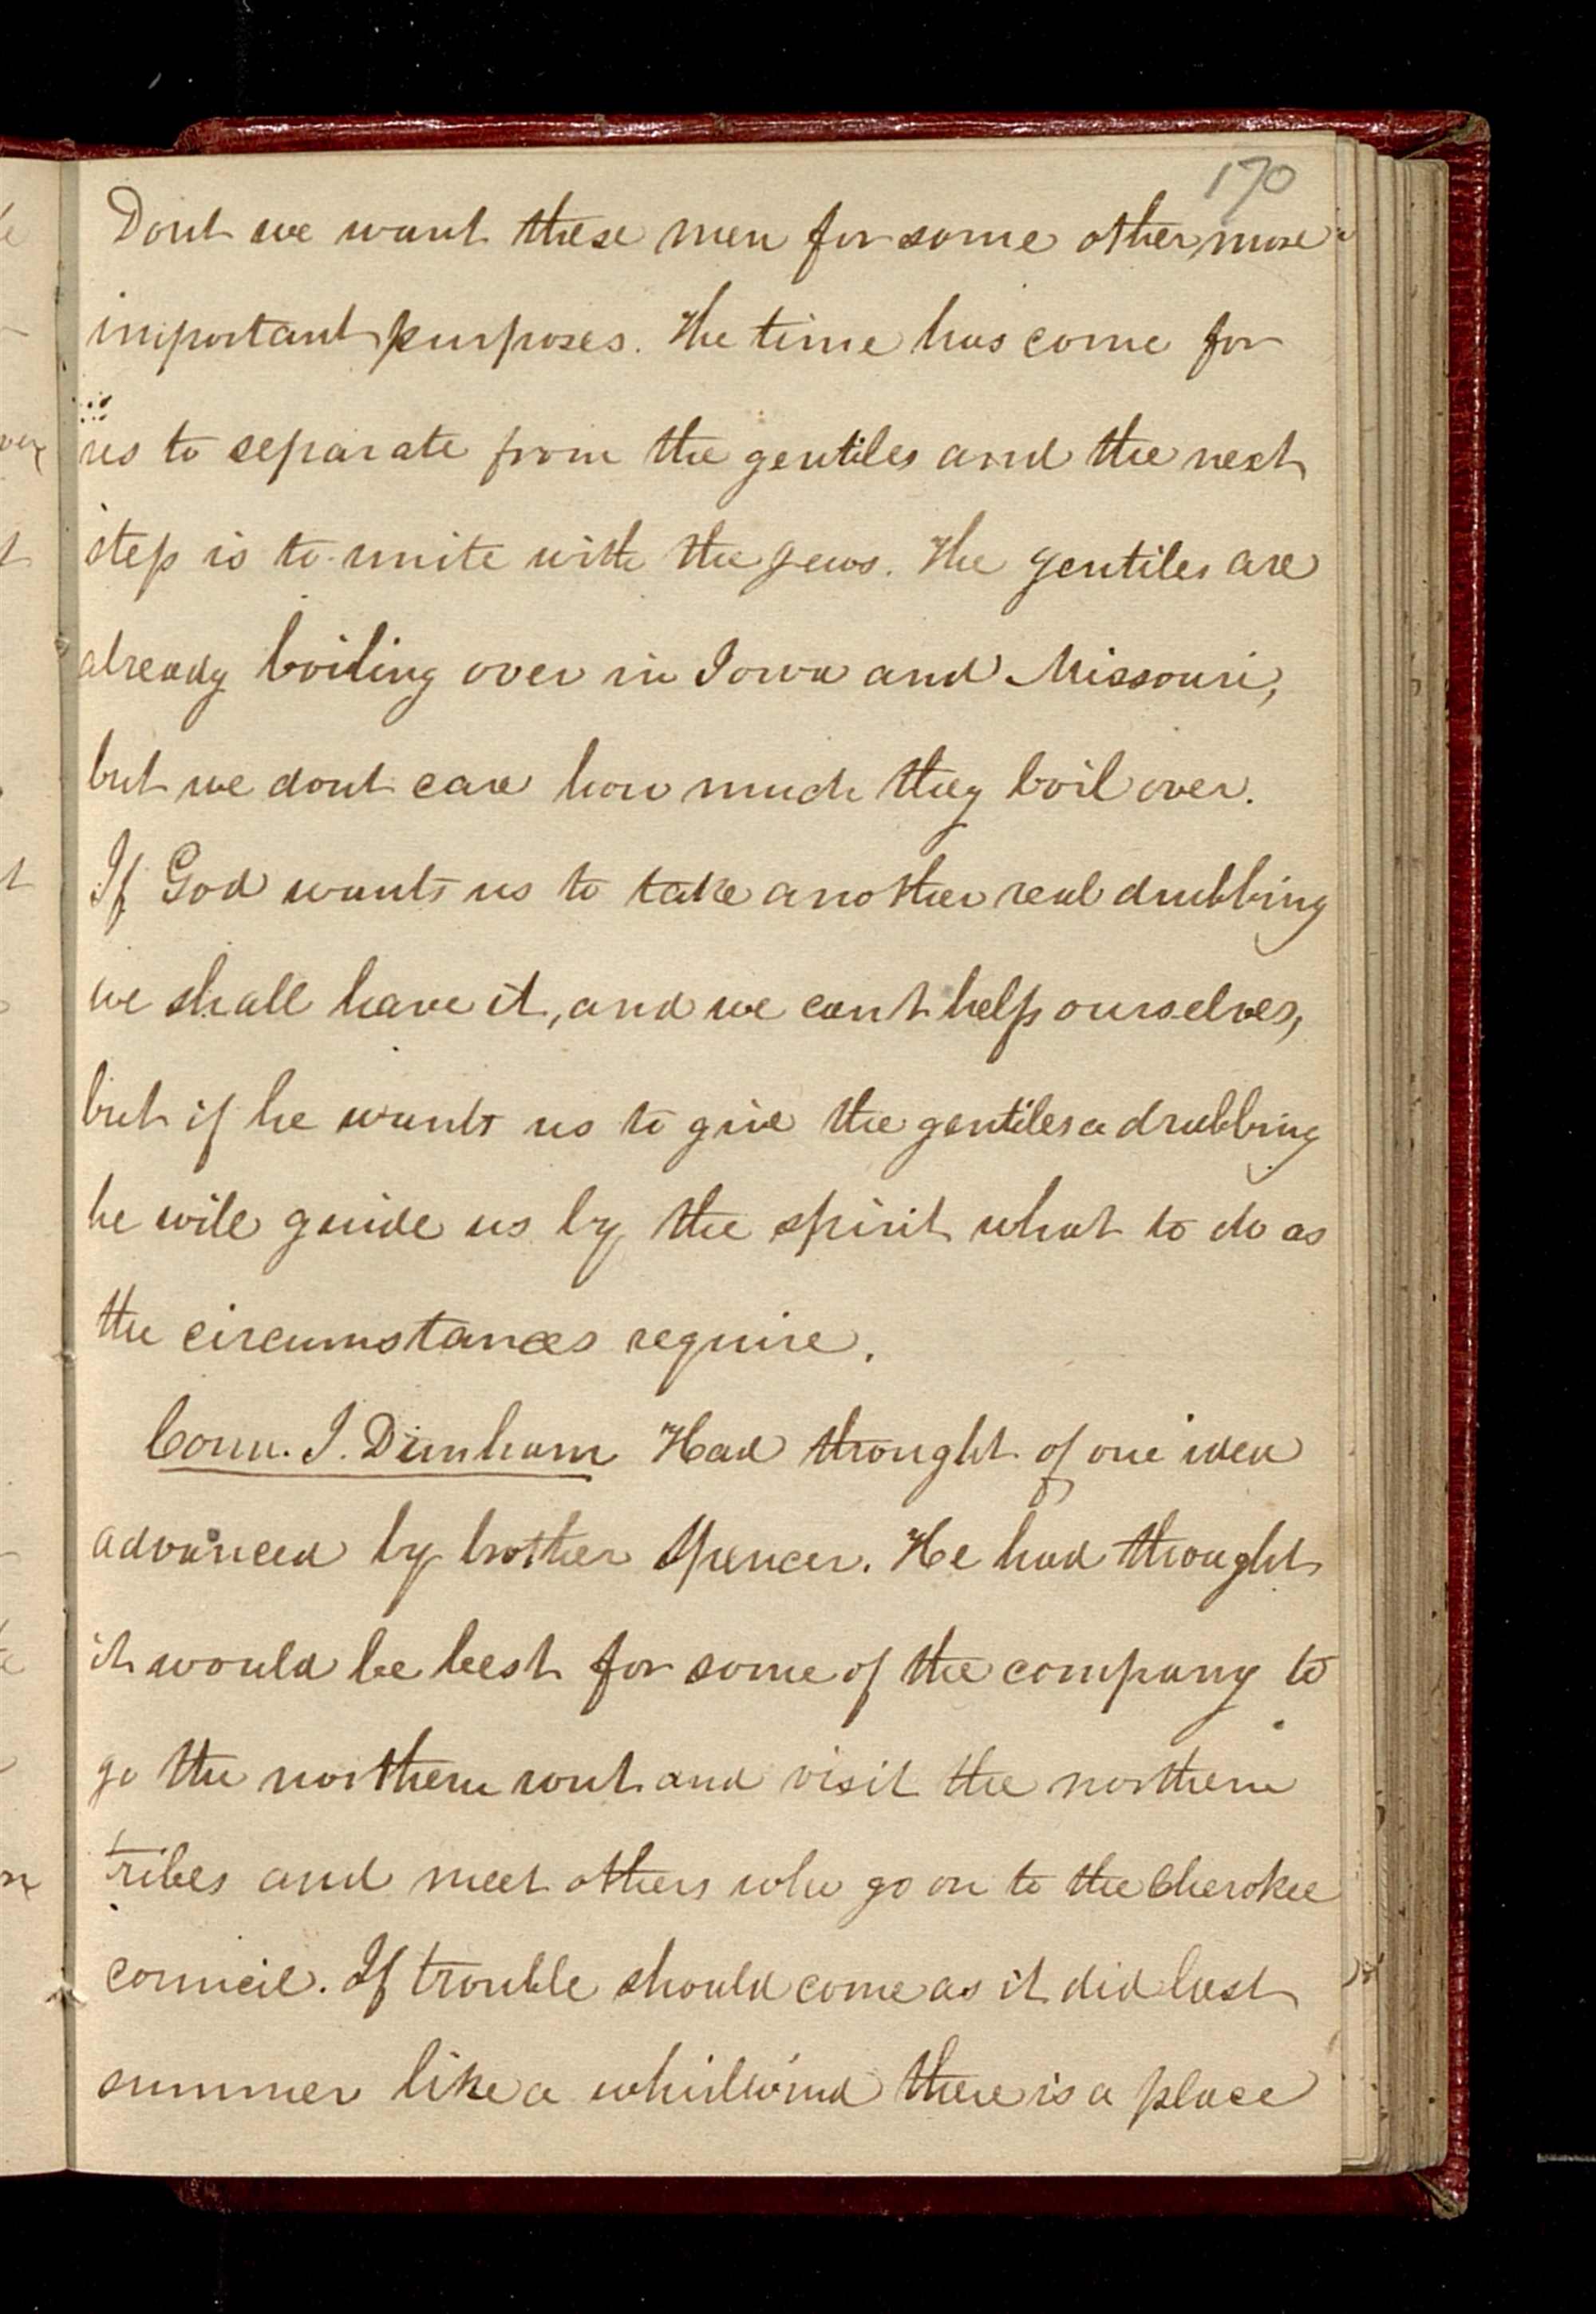 170
Dont we want these men for some other, more
important purposes. The time has come for
us to separate from the gentiles and the next
step is to unite with the Jews. The gentiles are
already boiling over in Iowa and Missouri,
but we dont care how much they boil over.
If God wants us to take another real drubbing
we shall have it, and we cant help ourselves,
but if he wants us to give the gentiles a drubbing
he will guide us by the spirit what to do as
the circumstances require.
Coun. J. Dunham Had thought of one idea
advanced by brother Spencer. He had thought
it would be best for some of the company to
go the northern rout and visit the northern
tribes and meet others who go on to the Cherokee
council. If trouble should come as it did last
summer like a whirlwind there is a place